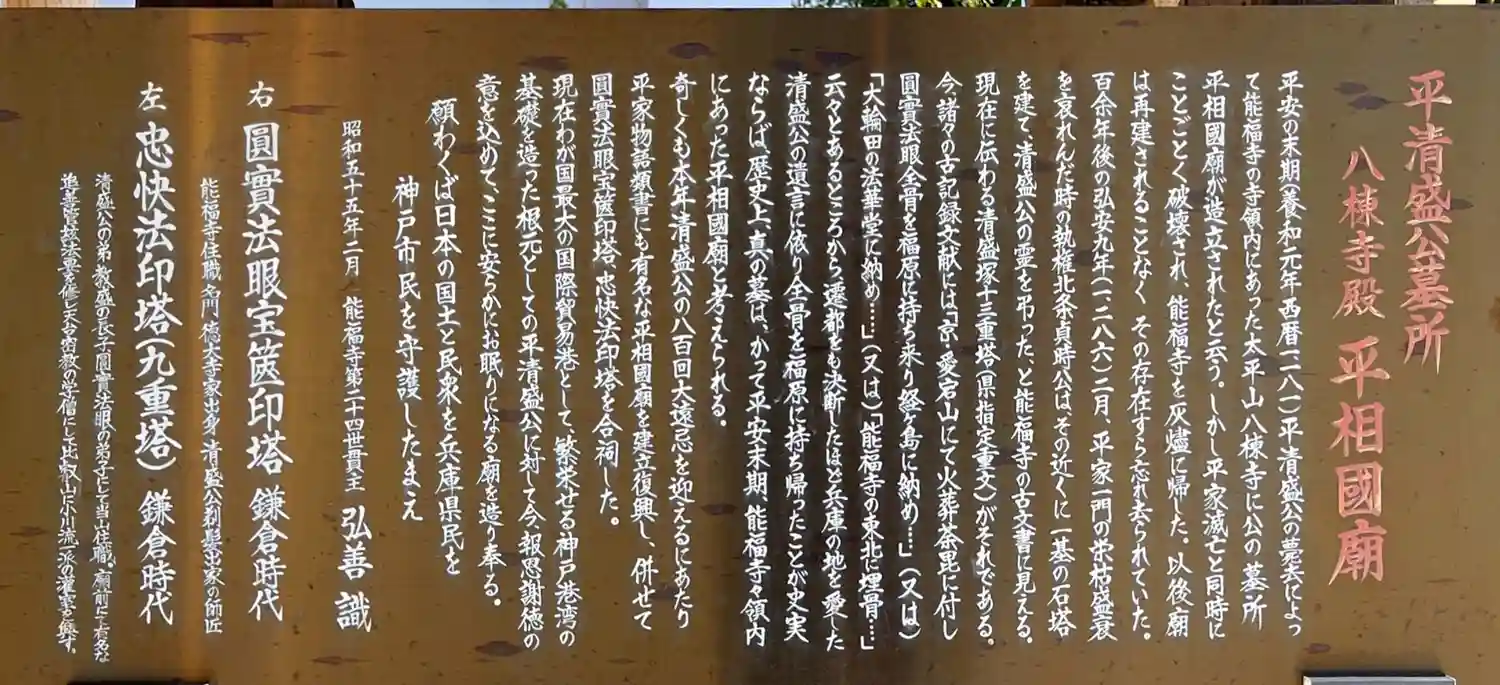 平清盛公墓所
八棟寺殿 平相國廟
平安の末期(養和元年西暦一一八一)平清盛公の薨去によっ
て能福寺の寺領内にあった太平山八棟寺に公の墓所
平相國廟が造立されたと云う。しかし平家滅亡と同時に
ことごとく破壊され、能福寺を灰燼に帰した。以後廟
は再建されることなく その存在すら忘れ去られていた。
百余年後の弘安九年(一二八六)二月、平家一門の栄枯盛衰
を哀れんだ時の執権北条貞時公は、その近くに一基の石塔
を建て、清盛公の霊を弔った、と能福寺の古文書に見える。
現在に伝わる清盛塚十三重塔(県指定重文)がそれである。
今諸々の古記録文献には「京・愛宕山にて火葬荼毘に付し
圓實法眼全骨を福原に持ち来り経ヶ島に納め……」(又は)
「大輪田の法華堂に納め……」(又は)「能福寺の東北に埋骨……」
云々とあるところから遷都をも決断したほど兵庫の地を愛した
清盛公の遺言に依り全骨をご福原に持ち帰ったことが史実
ならば、歴史上、真の墓は、かって平安末期、能福寺々領内
にあった平相國廟と考えられる。
奇しくも本年清盛公の八百回大遠忌を迎えるにあたり
平家物語類書にも有名な平相國廟を建立復興し、併せて
圓實法眼宝篋印塔、忠快法印塔を合祠した。
現在わが国最大の国際貿易港として、繁栄せる神戸港湾の
基礎を造った根元としての平清盛公に対して今、報恩謝徳の
意を込めて、ここに安らかにお眠りになる廟を造り奉る。
願わくば日本の国土と民衆を兵庫県民を
神戸市民を守護したまえ
昭和五十五年二月 能福寺第二十四世貫主 弘善 識
右 圓實法眼宝篋印塔 鎌倉時代
能福寺住職 名門、徳大寺家出身、清盛公剃髪出家の師匠
左 忠快法印塔(九重塔) 鎌倉時代
清盛公の弟 教盛の長子圓實法眼の弟子にして当山住職。廟前にて有名な
追善管絃法要を修し天台密教の学僧にして比叡山小川流一派の灌室を興す。